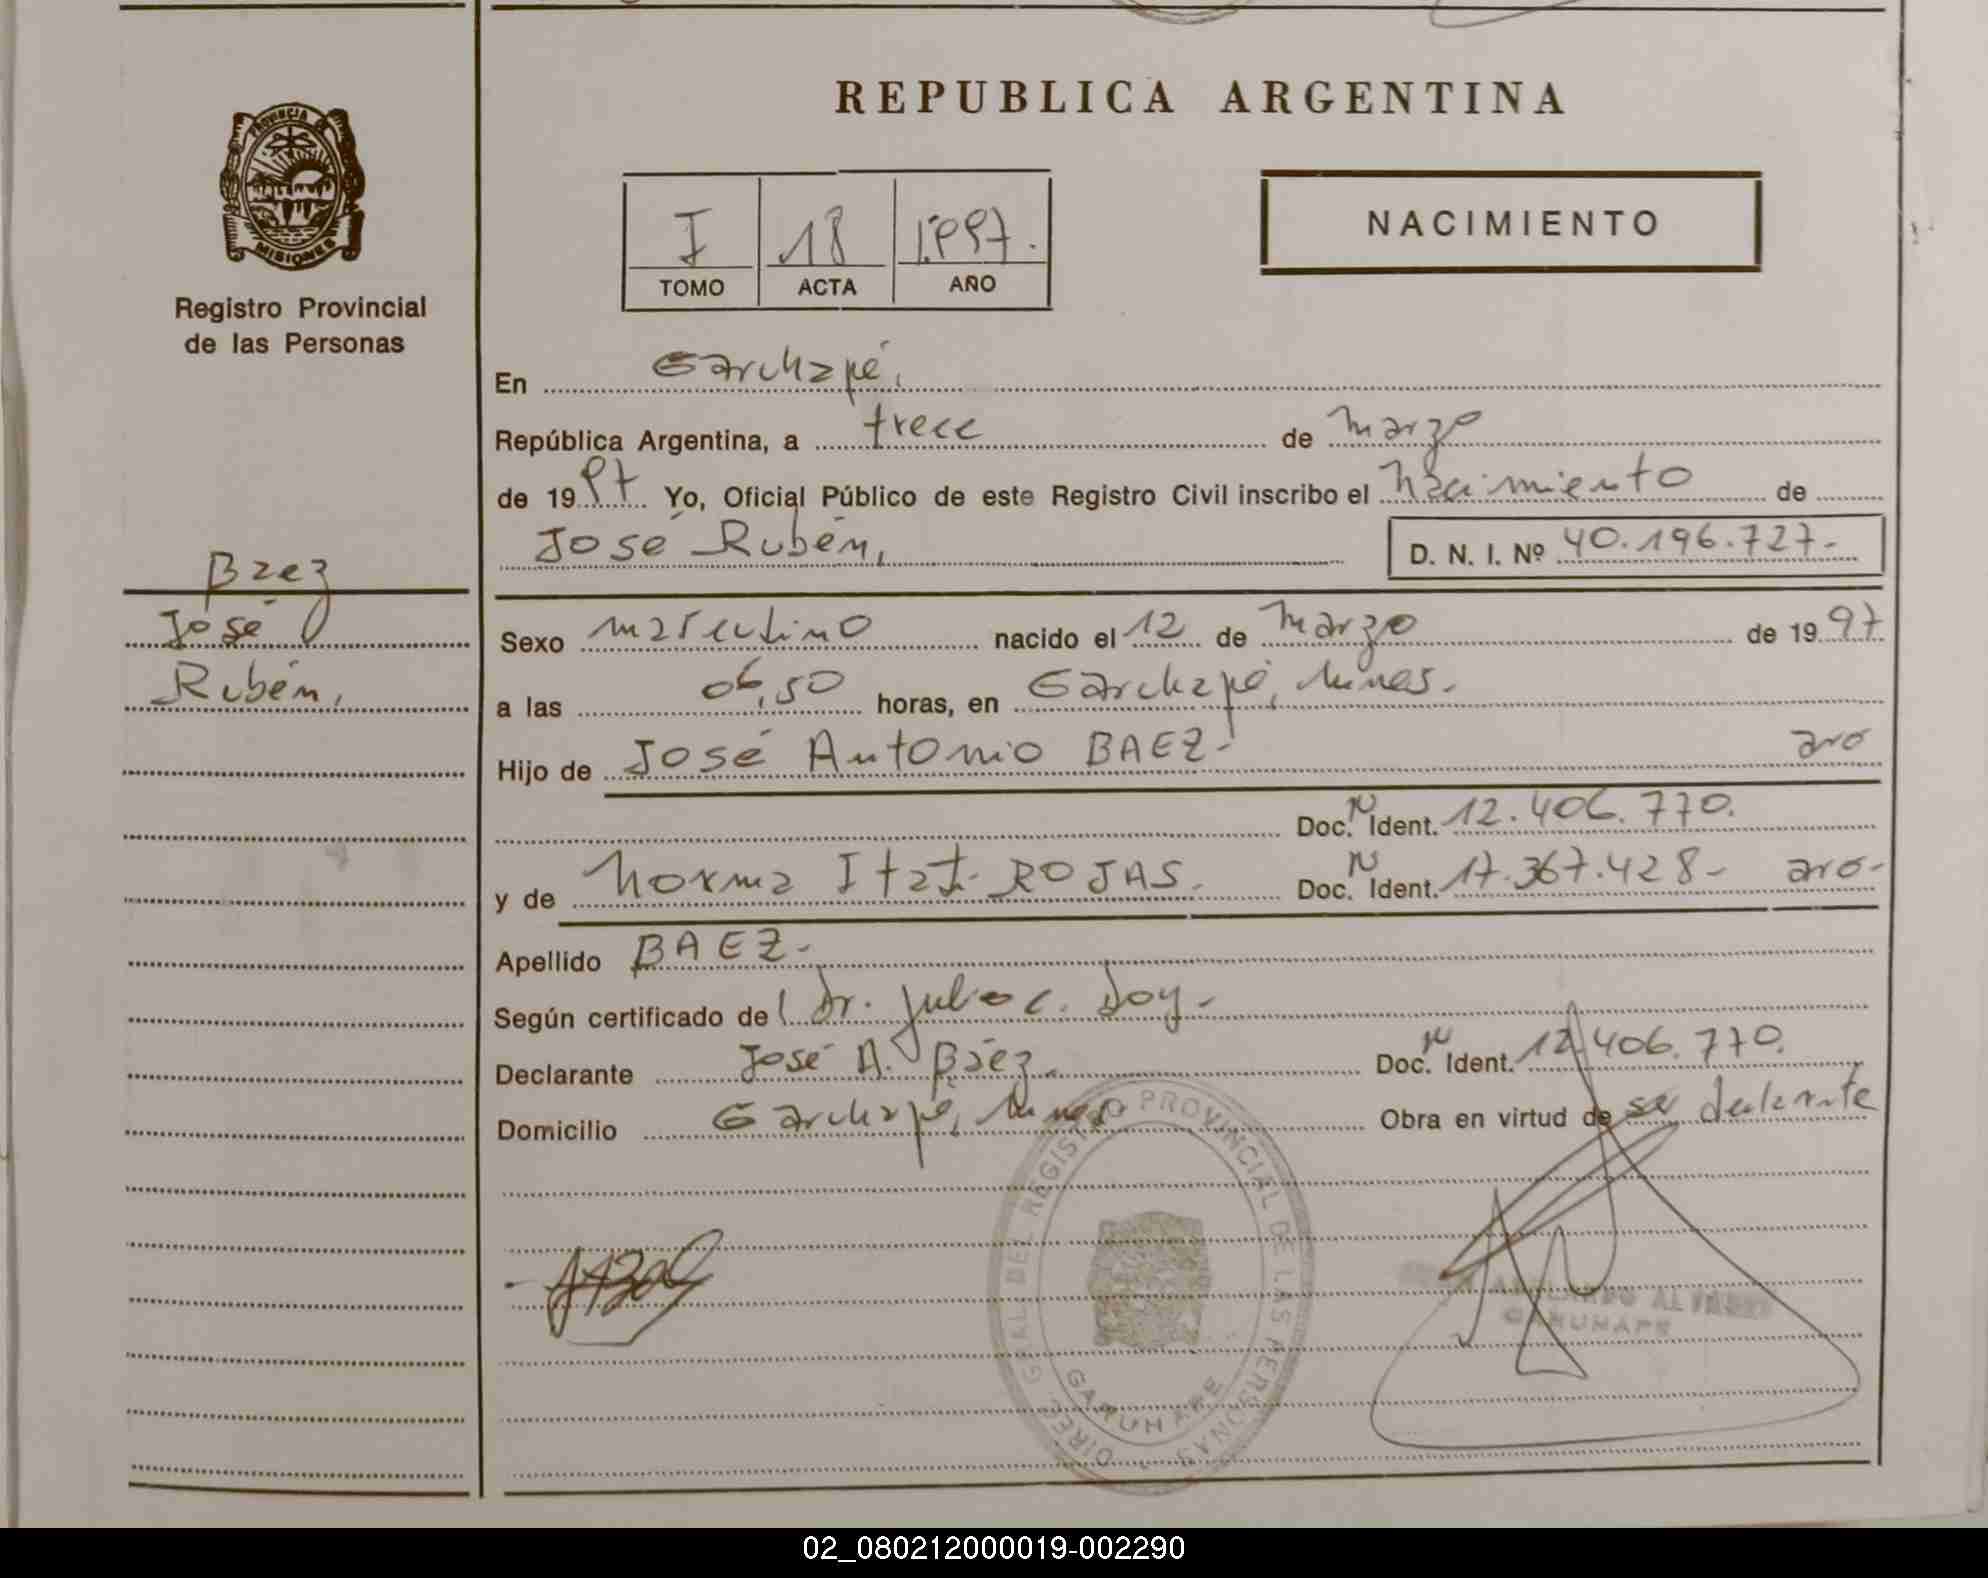 REPUBLICA ARGENTINA
PROVINCIA DE
MISIONES
Registro Provincial
de las Personas
I 18 1.997.
TOMO ACTA AÑO
NACIMIENTO
En Garuhapé,
República Argentina, a trece de marzo
de 1997 Yo, Oficial Público de este Registro Civil inscribo el Nacimiento de
José Rubén, D. N. I. Nº 40.196.727-
Baez
José
Rubén,
Sexo masculino nacido el 12 de marzo de 1997
a las 06,50 horas, en Garuhapé, Mnes.
Hijo de José Antonio BAEZ- arg
Doc. N Ident. 12.406.770.
y de Norma Itatí ROJAS. Doc. N Ident. 17.367.428- arg-
Apellido BAEZ-
Según certificado del Dr. Julio C. Doy-
Declarante José A. Báez. Doc. N Ident. 12.406.770.
Domicilio Garuhapé, Mnes Obra en virtud de ser declarante
DIREC. GRAL DEL REGISTRO PROVINCIAL DE LAS PERSONAS
GARUHAPE
GARUHAPE
02_080212000019-002290